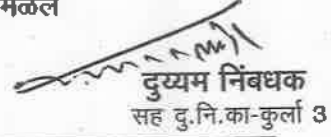 मळल
दुय्यम निंबधक
सह दु.नि.का-कुर्ला 3